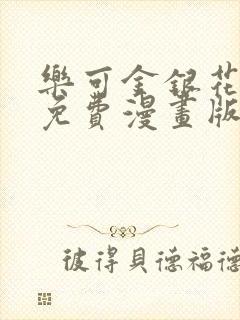 樂可金銀花
免費漫畫版
彼得貝德福德